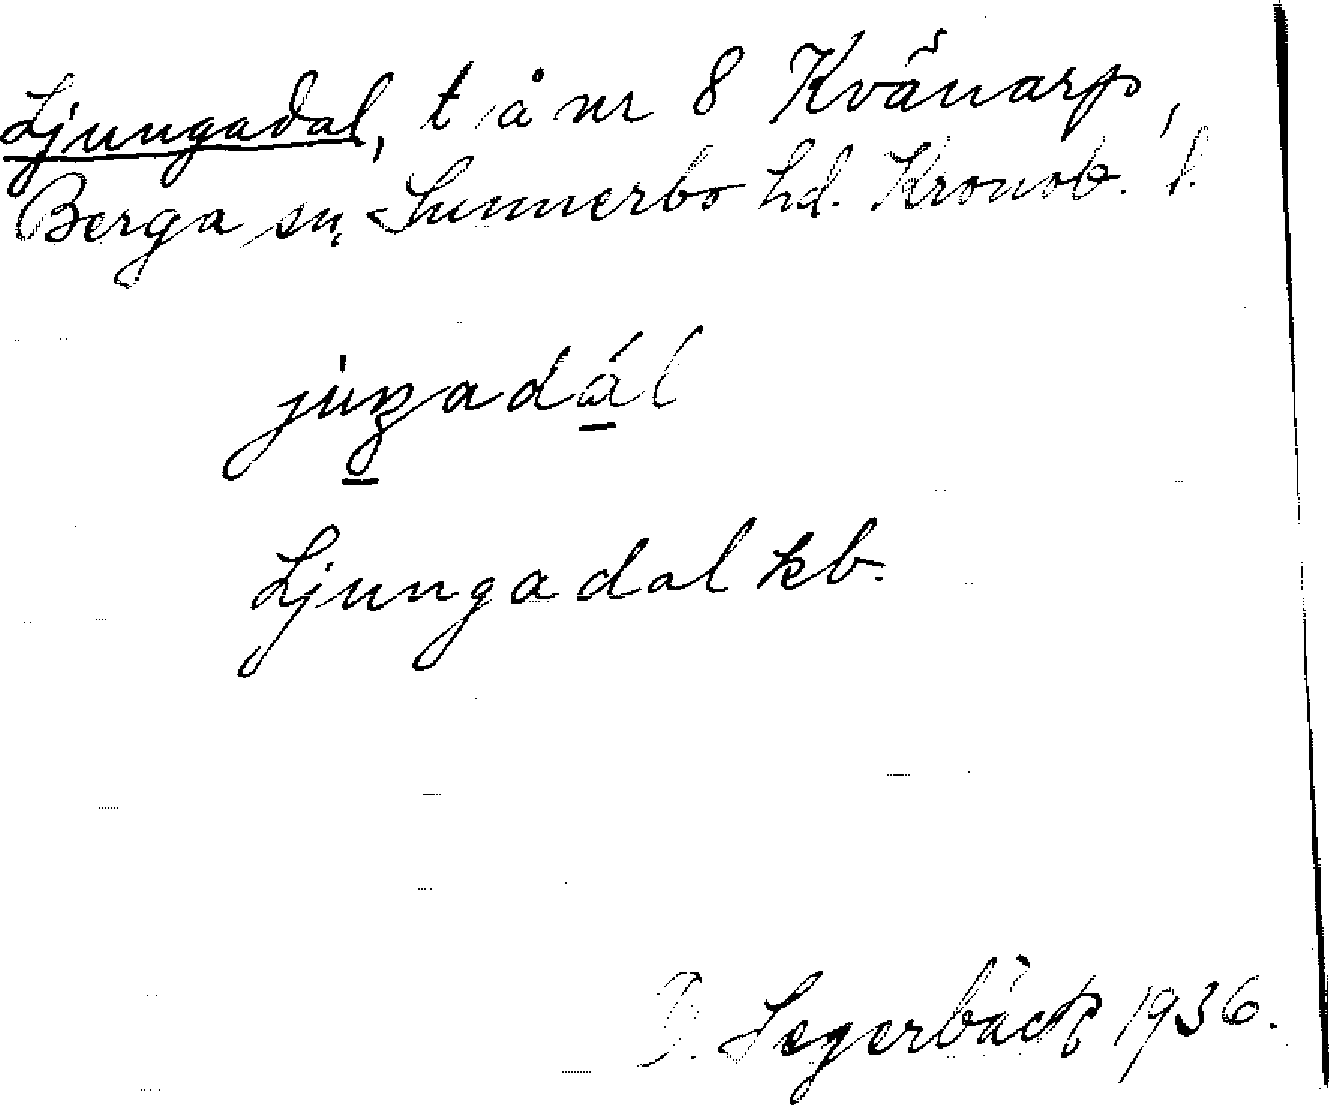 Ljungadal, t å nr 8 Kvänarp,
Berga sn, Sunnerbo hd. Kronob. l.
juŋadál
Ljungadal kb.
Segerbäck 1936.